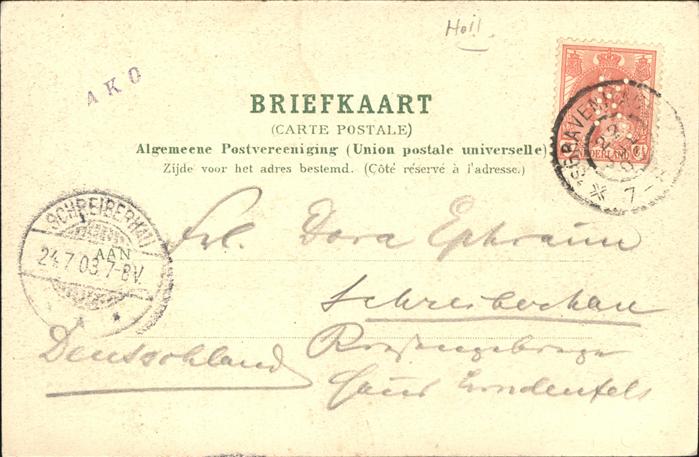 Holl.
AKO
BRIEFKAART
(CARTE POSTALE)
Algemeene Postvereeniging (Union postale universelle)
Zijde voor het adres bestemd. (Côté réservé à l'adresse.)
NEDERLAND
7
SCHREIBERHAU
24.7.03. 7-8V.
AAN
Frl. Dora Ephraim
Schreiberhau
Deutschland
Haus Lindenfels